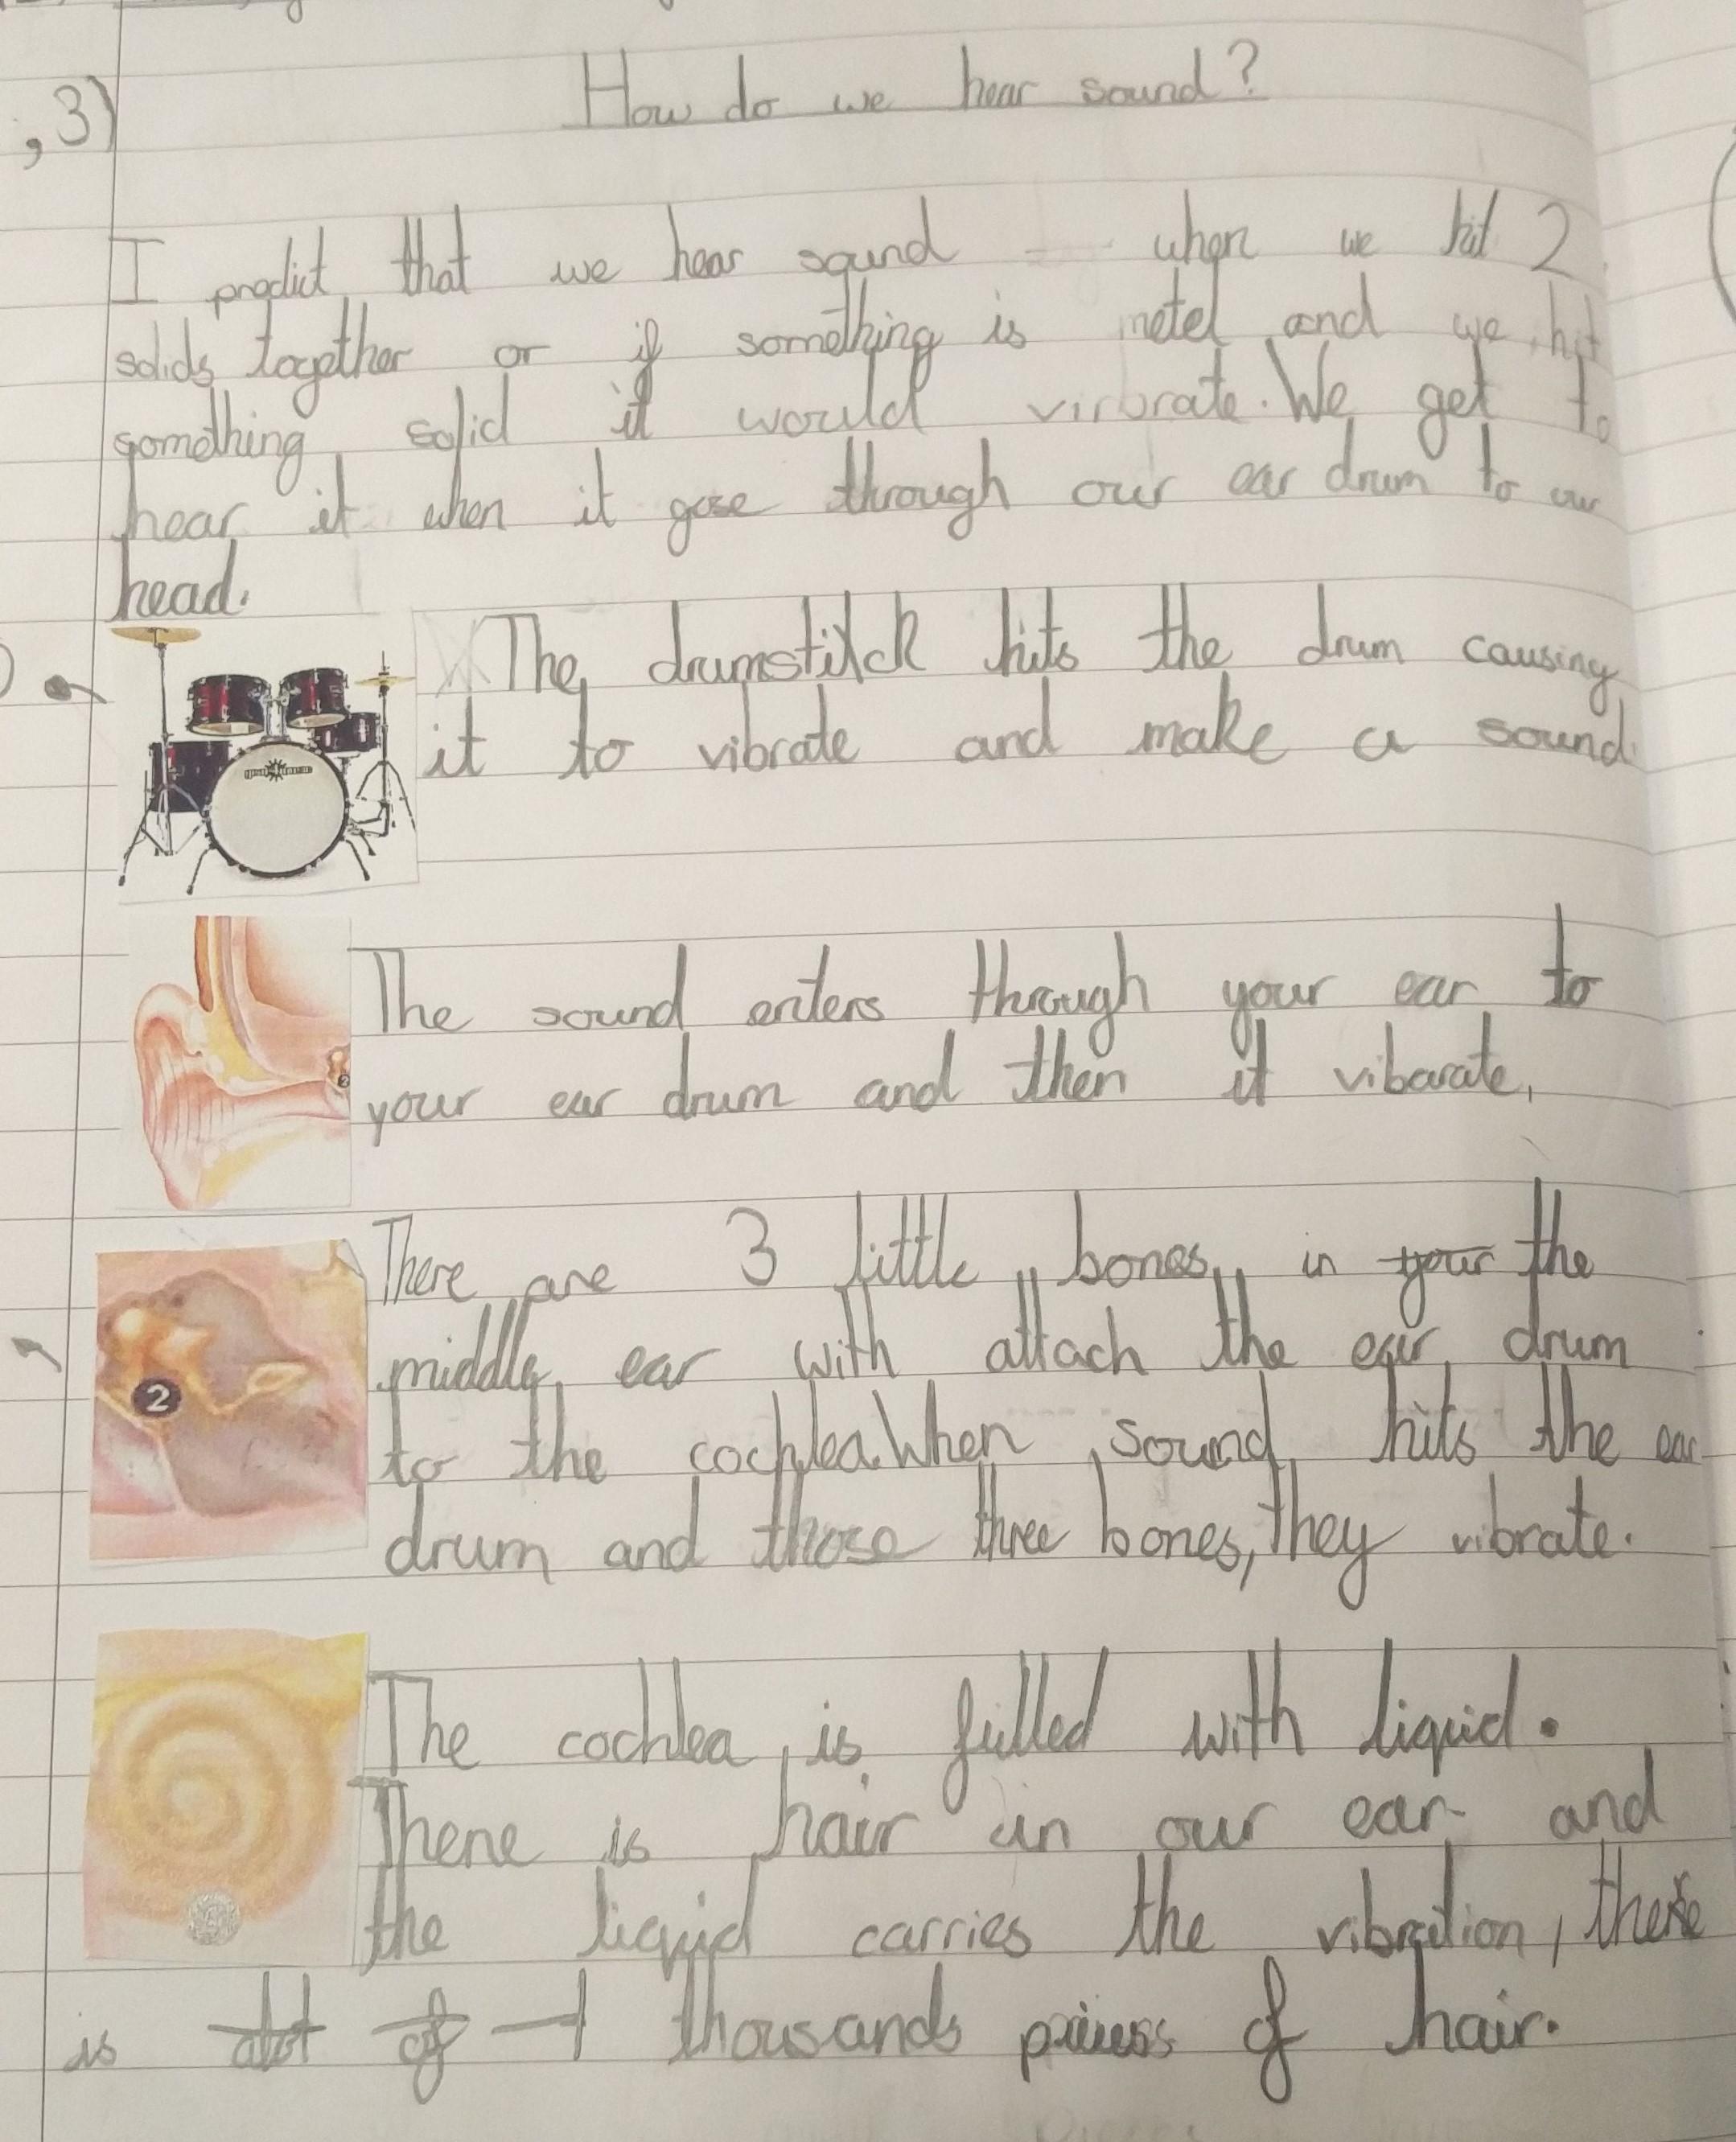 How do we hear sound?
, 3)
I predict that we hear sound when we hit 2
solids together or if something is metel and we hit
something solid it would virbrate. We get to
hear it when it gose through our ear drum to our
head.
The drumstick hits the drum causing
it to vibrate and make a sound.
The sound enters through your ear to
your ear drum and then it vibarate.
2
There are 3 little bones in ~~your~~ the
middle ear with attach the ear drum
2
to the cochlea. When sound hits the ear
drum and those three bones, they vibrate.
The cochlea is filled with liquid.
There is hair in our ear and
the liquid carries the vibration, there
is ~~alot~~ ~~of~~ thousands of hair.